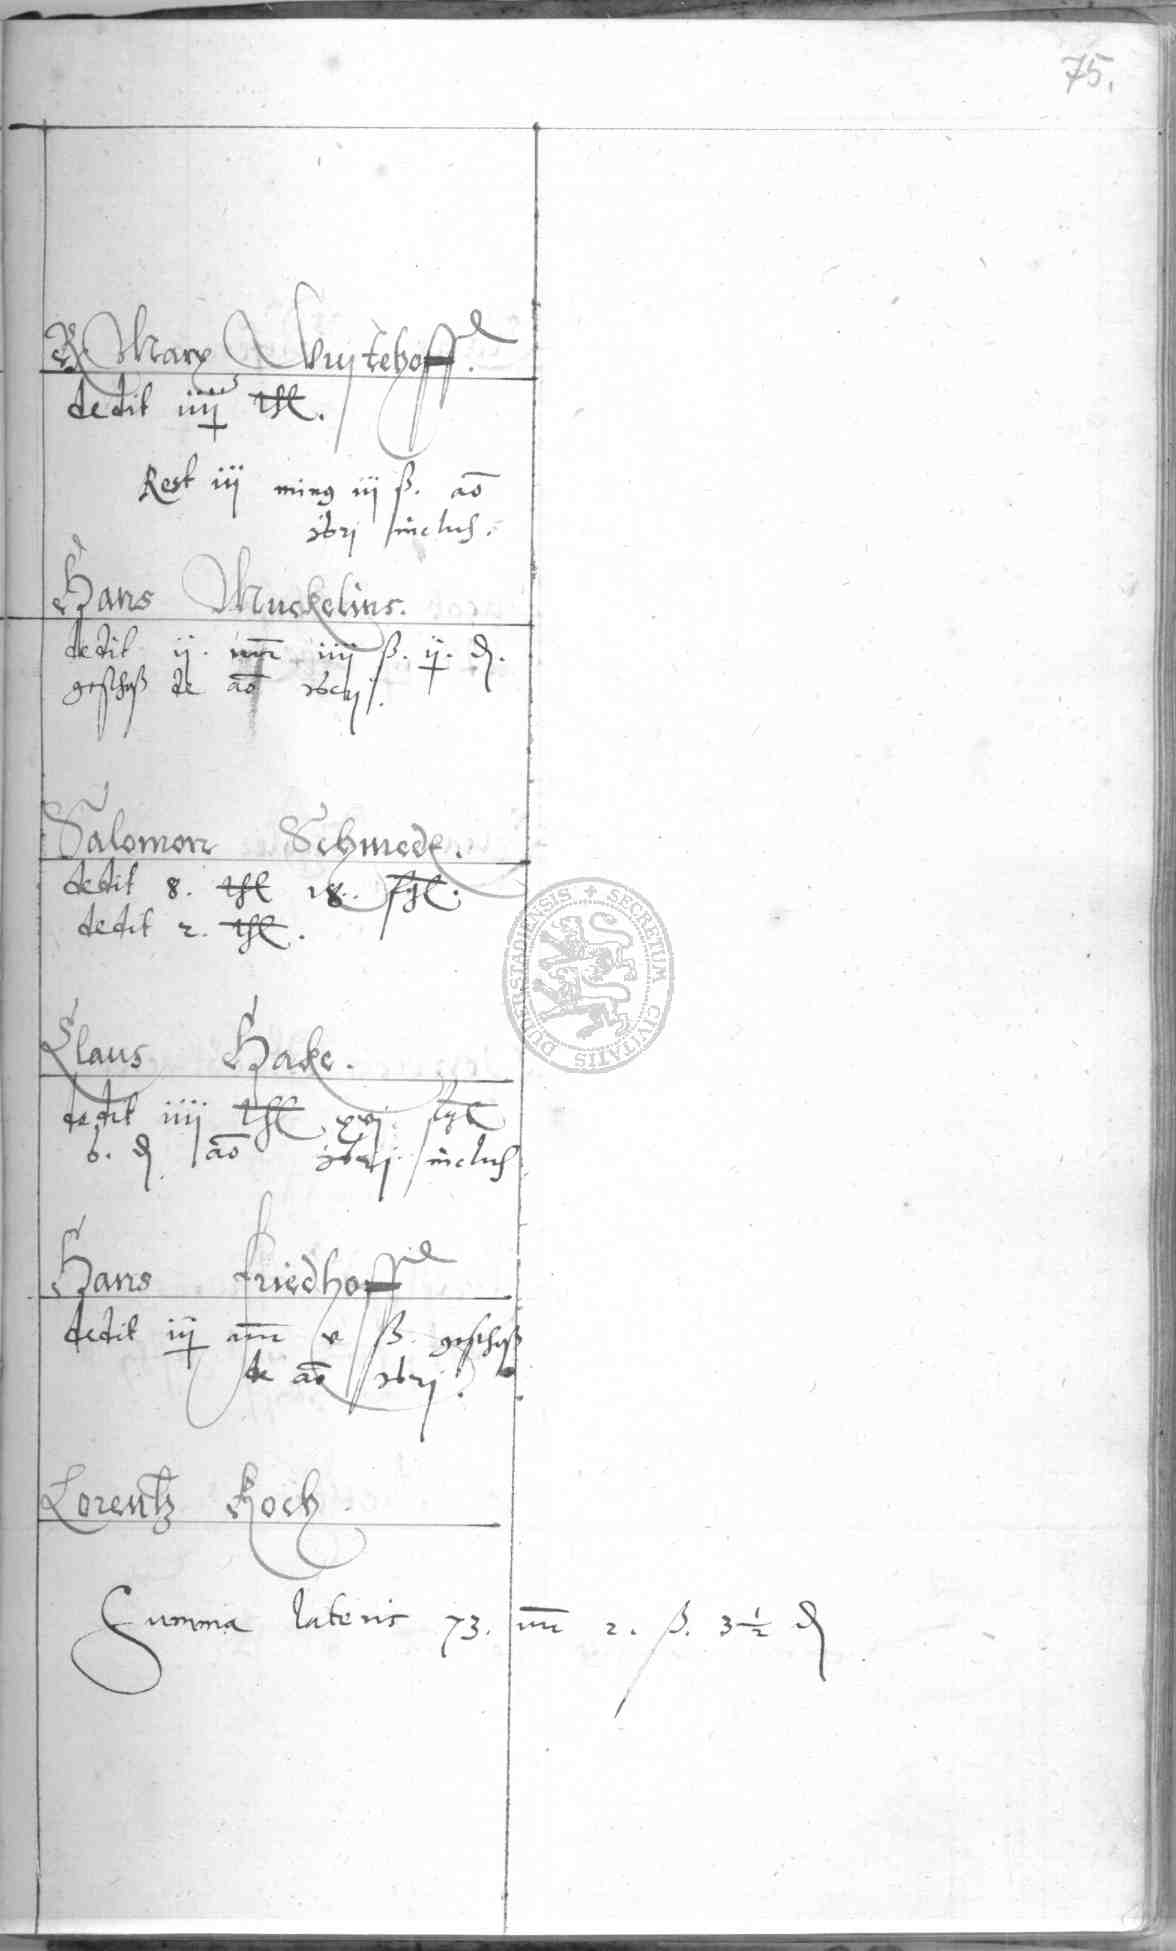 75.
R Marx Wrytehoff.
dedit iiij thl.
Rest iij iij ß. ao
inclus.
Hans Muckelins.
dedit ij. mr iiij ß. ij. d.
geschoß de ao
Salomon Schmedt.
dedit 8. thl 18.
dedit 2. thl.
Claus Hake.
dedit iiij thl xvj.
6. d ao inclus
Hans Friedhoff
dedit iij mr v ß. geschoß
de ao
Lorentz Koch.
Summa lateris 73. mr 2. ß. 3 1/2 d
SECRETUM CIVITATIS DUDERSTADIENSIS